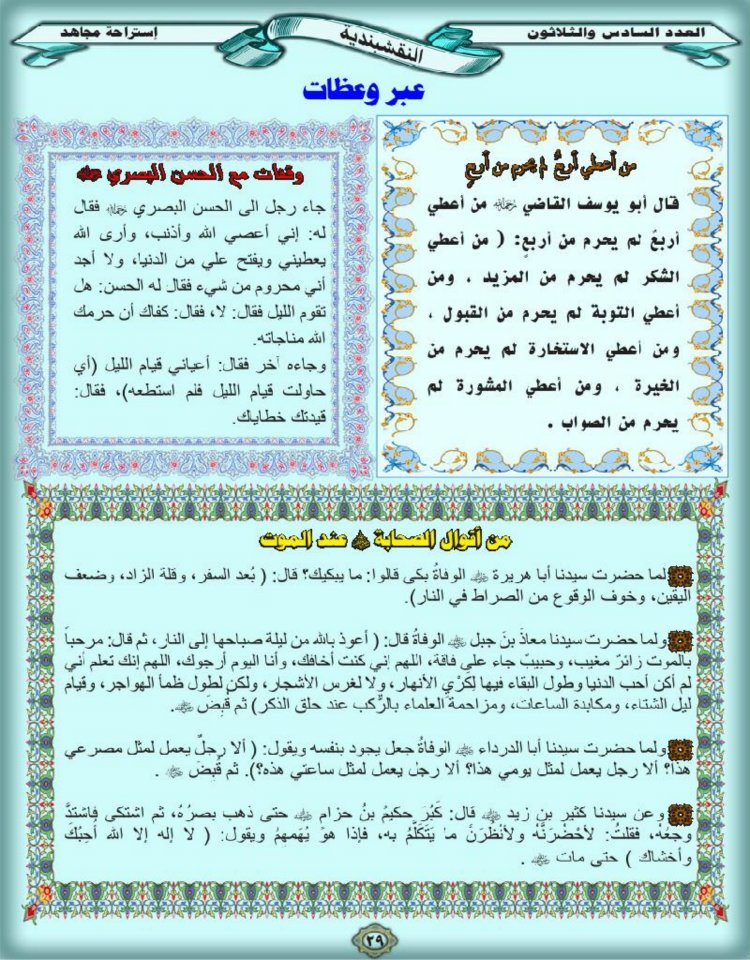 العدد السادس والثلاثون
النقشبندية
إستراحة مجاهد
عبر وعظات
من أعطي أربعٌ لم يحرم من أربعٍ
قال أبو يوسف القاضي رحمه الله من أعطي
أربعٌ لم يحرم من أربعٍ: ( من أعطي
الشكر لم يحرم من المزيد ، ومن
أعطي التوبة لم يحرم من القبول ،
ومن أعطي الاستخارة لم يحرم من
الخيرة ، ومن أعطي المشورة لم
يحرم من الصواب .
وقفات مع الحسن البصري
جاء رجل الى الحسن البصري رحمه الله فقال
له: إني أعصي الله وأذنب، وأرى الله
يعطيني ويفتح علي من الدنيا، ولا أجد
أني محروم من شيء فقال له الحسن: هل
تقوم الليل فقال: لا، فقال: كفاك أن حرمك
الله مناجاته.
وجاءه آخر فقال: أعياني قيام الليل (أي
حاولت قيام الليل فلم استطعه)، فقال:
قيدتك خطاياك.
من أقوال الصحابة عند الموت
لما حضرت سيدنا أبا هريرة الوفاةُ بكى قالوا: ما يبكيك؟ قال: ( بُعد السفر، وقلة الزاد، وضعف
اليقين، وخوف الوقوع من الصراط في النار).
ولما حضرت سيدنا معاذَ بنَ جبل الوفاةُ قال: ( أعوذ بالله من ليلة صباحها إلى النار، ثم قال: مرحباً
بالموت زائرٌ مغيب، وحبيبٌ جاء علي فاقة، اللهم إني كنت أخافك، وأنا اليوم أرجوك، اللهم إنك تعلم أني
لم أكن أحب الدنيا وطول البقاء فيها لِكَرْي الأنهار، ولا لغرس الأشجار، ولكن لطول ظمأ الهواجر، وقيام
ليل الشتاء، ومكابدة الساعات، ومزاحمة العلماء بالرُّكب عند حلق الذكر) ثم قُبِضَ .
ولما حضرت سيدنا أبا الدرداء الوفاةُ جعل يجود بنفسه ويقول: ( ألا رجلٌ يعمل لمثل مصرعي
هذا؟ ألا رجل يعمل لمثل يومي هذا؟ ألا رجل يعمل لمثل ساعتي هذه؟). ثم قُبِضَ .
وعن سيدنا كثير بن زيد قال: كَبُرَ حكيمُ بنُ حزام حتى ذهب بصرُهُ، ثم اشتكى فاشتدَّ
وجعُهُ، فقلتُ: لأَحْضُرَنَّه ولأنظُرَنَّ ما يَتَكَلَّمُ به، فإذا هوَ يُهَمهمُ ويقول: ( لا إله إلا الله أُحِبُكَ
وأخشاك ) حتى مات .
٣٩